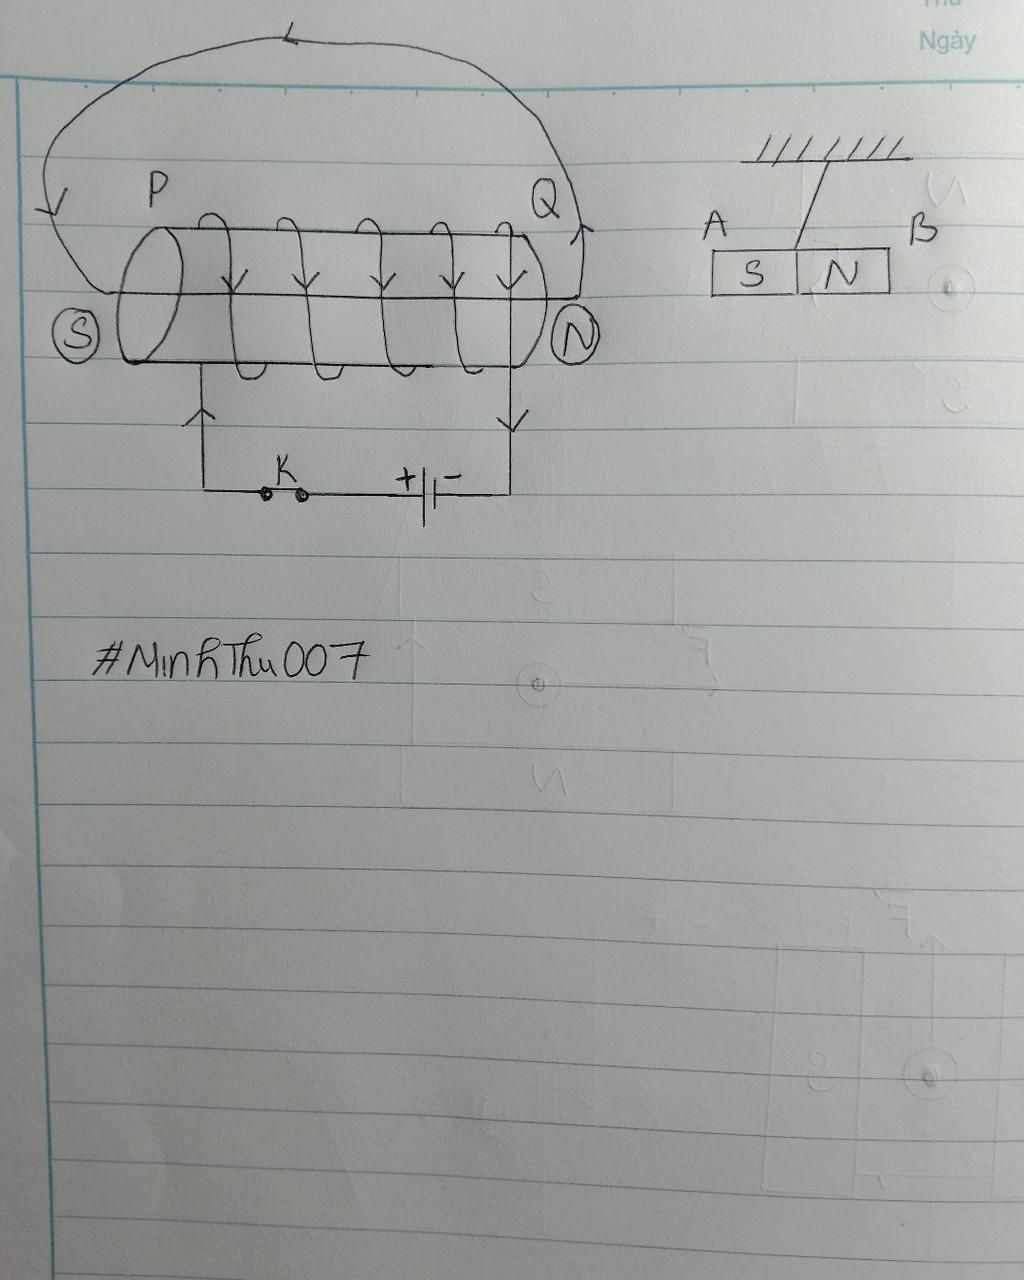 Thứ
Ngày
P
Q
A
B
S N
S
N
K
+ -
#MinhThu007